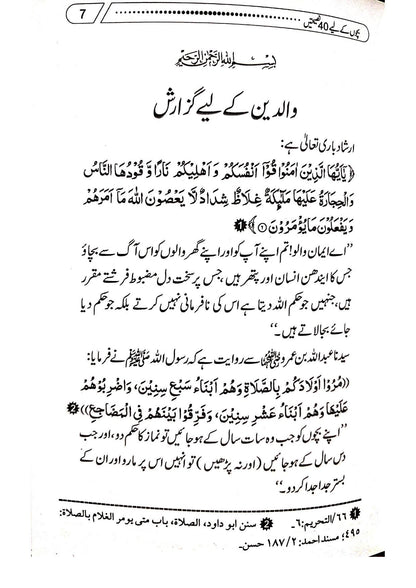 بچوں کے لیے 40 نصیحتیں 7
بسم الله الرحمن الرحيم
والدین کے لیے گزارش
ارشاد باری تعالیٰ ہے:
﴿يٰٓاَيُّهَا الَّذِيْنَ اٰمَنُوْا قُوْٓا اَنْفُسَكُمْ وَ اَهْلِيْكُمْ نَارًا وَّ قُوْدُهَا النَّاسُ
وَ الْحِجَارَةُ عَلَيْهَا مَلٰٓئِكَةٌ غِلَاظٌ شِدَادٌ لَّا يَعْصُوْنَ اللّٰهَ مَآ اَمَرَهُمْ
وَ يَفْعَلُوْنَ مَا يُؤْمَرُوْنَ ۝۶﴾ ❶
”اے ایمان والو! تم اپنے آپ کو اور اپنے گھر والوں کو اس آگ سے بچاؤ
جس کا ایندھن انسان اور پتھر ہیں، جس پر سخت دل مضبوط فرشتے مقرر
ہیں، جنہیں جو حکم اللہ دیتا ہے اس کی نافرمانی نہیں کرتے بلکہ جو حکم دیا
جائے بجا لاتے ہیں۔“
سیدنا عبداللہ بن عمرو رضی اللہ عنہما سے روایت ہے کہ رسول اللہ ﷺ نے فرمایا:
((مُرُوْا اَوْلَادَكُمْ بِالصَّلَاةِ وَهُمْ اَبْنَاءُ سَبْعِ سِنِيْنَ، وَاضْرِبُوْهُمْ
عَلَيْهَا وَهُمْ اَبْنَاءُ عَشْرِ سِنِيْنَ، وَفَرِّقُوْا بَيْنَهُمْ فِي الْمَضَاجِعِ)) ❷
”اپنے بچوں کو جب وہ سات سال کے ہو جائیں تو نماز کا حکم دو، اور جب
دس سال کے ہو جائیں (اور نہ پڑھیں) تو انہیں اس پر مارو اور ان کے
بستر جدا جدا کر دو۔“
❶ ٦٦/التحریم: ٦۔ ❷ سنن ابو داود، الصلاة، باب متی یومر الغلام بالصلاة:
٤٩٥؛ مسند احمد: ٢/ ١٨٧ حسن۔